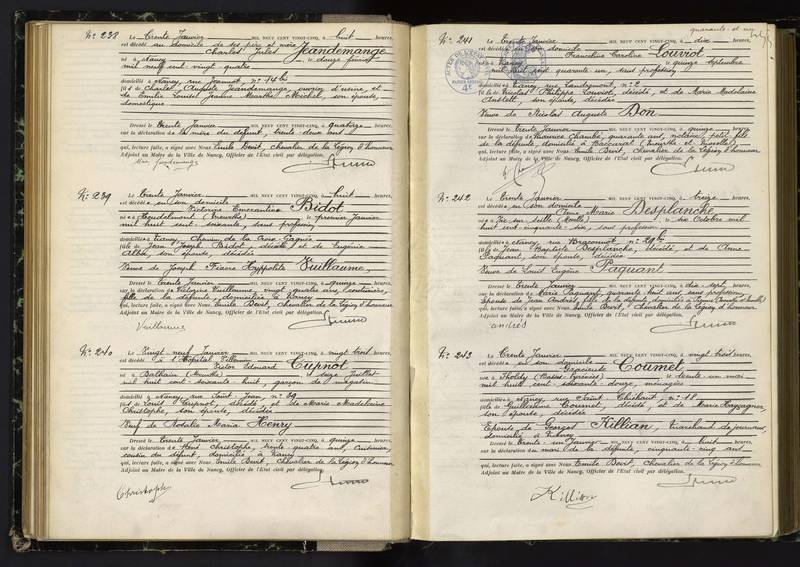 N° 238 Le Trente Janvier MIL NEUF CENT VINGT-CINQ, à huit heures,
est décédé au domicile de ses père et mère
Charles Jules Jeandemange
né à Nancy, le douze
mil neuf cent vingt-quatre
domicilié à Nancy, rue Jeannot, n° 14 bis
fils de Charles Auguste Jeandemange, ouvrier d'usine, et
de Emilie Louise Jeanne Michel, son épouse,
domestique
Dressé le Trente Janvier MIL NEUF CENT VINGT-CINQ, à quatorze heures,
sur la déclaration de la mère du défunt, trente deux ans
qui, lecture faite, a signé avec Nous Emile Bevit, Chevalier de la Légion d'honneur
Adjoint au Maire de la Ville de Nancy, Officier de l'Etat civil par délégation.
N° 239 Le Trente Janvier MIL NEUF CENT VINGT-CINQ, à huit heures,
est décédée en son domicile
Victorine Emerantine Bidot
née à Houdelmont (Meurthe) le premier Janvier
mil huit cent soixante, sans profession
domiciliée à Nancy, Chemin de la Croix-Gagnée
fille de Jean Joseph Bidot, décédé, et de Eugénie
son épouse, décédée
Veuve de Joseph Fiacre Hyppolite Vuillaume,
Dressé le Trente Janvier MIL NEUF CENT VINGT-CINQ, à quinze heures,
sur la déclaration de Victorine Vuillaume, vingt quatre ans, couturière,
fille de la défunte, domiciliée à Nancy
qui, lecture faite, a signé avec Nous Emile Bevit, Chevalier de la Légion d'honneur
Adjoint au Maire de la Ville de Nancy, Officier de l'Etat civil par délégation.
Vuillaume
N° 240 Le Vingt neuf Janvier MIL NEUF CENT VINGT-CINQ, à vingt trois heures,
est décédé à l'Hôpital Villemin
Victor Edouard Cupnot
né à Bathain (Meurthe) le seize Juillet
mil huit cent soixante huit, garçon de magasin
domicilié à Nancy, rue Saint Jean, n° 39
fils de Louis Cupnot, décédé, et de Marie Madeleine
Christophe, son épouse, décédée
Veuf de Natalie Maria Henry
Dressé le Trente Janvier MIL NEUF CENT VINGT-CINQ, à quinze heures,
sur la déclaration de René Christophe, trente quatre ans,
cousin du défunt, domicilié à Nancy
qui, lecture faite, a signé avec Nous Emile Bevit, Chevalier de la Légion d'honneur
Adjoint au Maire de la Ville de Nancy, Officier de l'Etat civil par délégation.
Christophe
quarante et un
N° 241 Le Trente Janvier MIL NEUF CENT VINGT-CINQ, à dix heures,
est décédée en son domicile
Francine Caroline Louviot
née à Nancy le quinze septembre
mil huit cent quarante un, sans profession
domiciliée à Nancy, rue n° 2
fille de Nicolas Philippe Louviot, décédé, et de Marie Madeleine
son épouse, décédée
Veuve de Nicolas Auguste Don
Dressé le Trente Janvier MIL NEUF CENT VINGT-CINQ, à quinze heures,
sur la déclaration de quarante ans, notaire, petit fils
de la défunte, domicilié à Baccarat (Meurthe et Moselle)
qui, lecture faite, a signé avec Nous Emile Bevit, Chevalier de la Légion d'honneur
Adjoint au Maire de la Ville de Nancy, Officier de l'Etat civil par délégation.
N° 242 Le Trente Janvier MIL NEUF CENT VINGT-CINQ, à treize heures,
est décédée en son domicile
Anne Marie Desplanche
née à Vic-sur-Seille (Moselle) le six Octobre mil
huit cent cinquante-six, sans profession
domiciliée à Nancy, rue Braconnot, n° 29 bis
fille de Jean Baptiste Desplanche, décédé, et de Anne
Paquant, son épouse, décédée
Veuve de Louis Eugène Paquant
Dressé le Trente Janvier MIL NEUF CENT VINGT-CINQ, à dix sept heures,
sur la déclaration de Marie Paquant, quarante huit ans, sans profession,
épouse de Jean Andrès, fille de la défunte, domiciliée à
qui, lecture faite, a signé avec Nous Emile Bevit, Chevalier de la Légion d'honneur
Adjoint au Maire de la Ville de Nancy, Officier de l'Etat civil par délégation.
andrès
N° 243 Le Trente Janvier MIL NEUF CENT VINGT-CINQ, à vingt trois heures,
est décédée en son domicile
Gracieuse Coumet
née à Tholdy (Basses-Pyrénées) le trente un mai
mil huit cent soixante-douze, ménagère
domiciliée à Nancy, rue Saint Thiébaut, n° 18
fille de Guillaume Coumet, décédé, et de Marie
son épouse, décédée
Epouse de Georges Killian, Marchand de journaux,
domicilié à Nancy
Dressé le Trente-un Janvier MIL NEUF CENT VINGT-CINQ, à huit heures,
sur la déclaration du mari de la défunte, cinquante-cinq ans
qui, lecture faite, a signé avec Nous Emile Bevit, Chevalier de la Légion d'honneur
Adjoint au Maire de la Ville de Nancy, Officier de l'Etat civil par délégation.
Killian